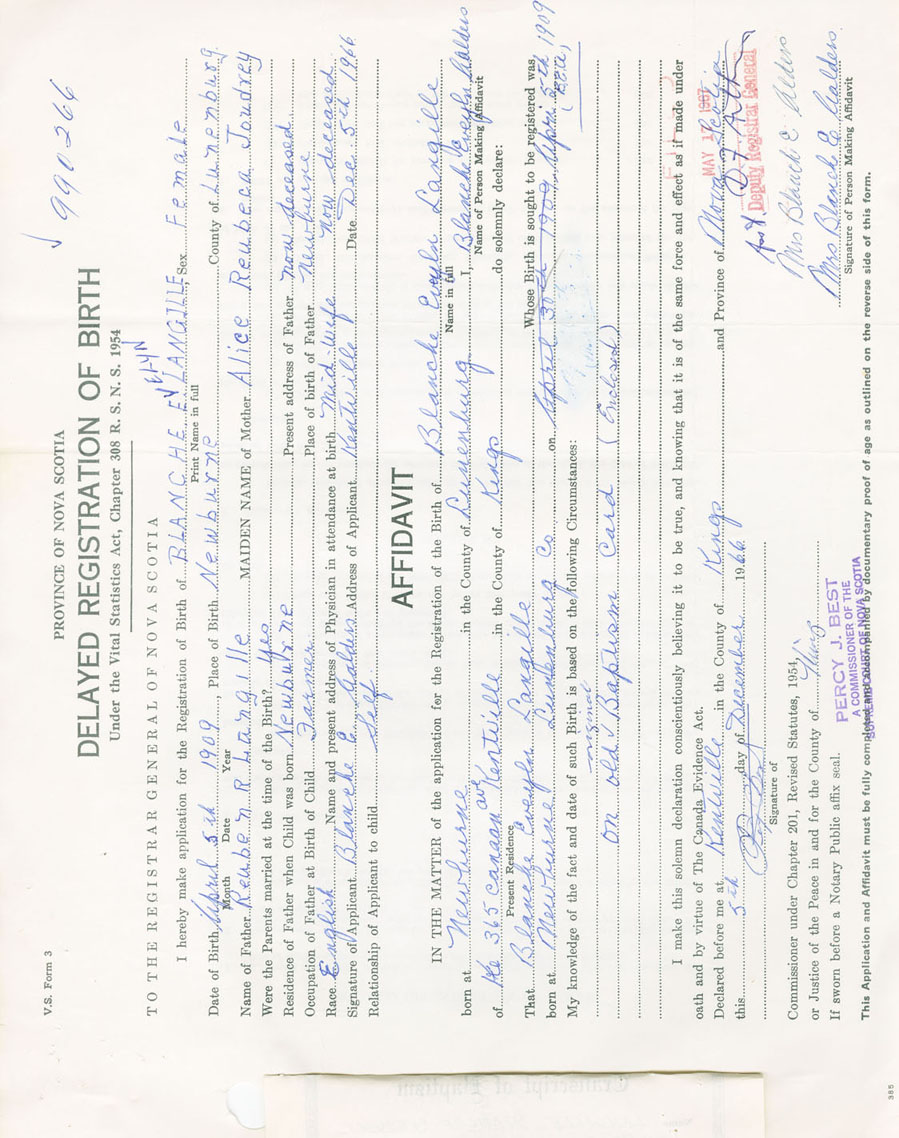 √ 990266
V.S. Form 3
PROVINCE OF NOVA SCOTIA
DELAYED REGISTRATION OF BIRTH
Under the Vital Statistics Act, Chapter 308 R. S. N. S. 1954
TO THE REGISTRAR GENERAL OF NOVA SCOTIA
EVELYN
I hereby make application for the Registration of Birth of BLANCHE E LANGILLE Sex Female
Print Name in full
Date of Birth, April 5th 1909, Place of Birth Newburne County of Lunenburg
Month Date Year
Name of Father Reuben R Langille MAIDEN NAME of Mother Alice Reubeca Joudrey
Were the Parents married at the time of the Birth? yes
Residence of Father when Child was born Newburne Present address of Father now deceased
Occupation of Father at Birth of Child Farmer Place of birth of Father Newburne
Race English Name and present address of Physician in attendance at birth Mid-wife now deceased
Signature of Applicant Blanche E Calders Address of Applicant Kentville Date Dec 5th 1966
Relationship of Applicant to child Self
AFFIDAVIT
IN THE MATTER of the application for the Registration of the Birth of Blanche Evelyn Langille
Name in full
born at Newburne in the County of Lunenburg I, Blanche Eveyln Calders
Name of Person Making Affidavit
of 365 Canaan ave Kentville in the County of Kings do solemnly declare:
Present Residence
That Blanche Eveyln Langille Whose Birth is sought to be registered was,
born at Newburne Lunenburg Co on April 30th 1909 Apri 5th 1909
My knowledge of the fact and date of such Birth is based on the following Circumstances: (BEC)
signed
on old Baptism Card (Enclosed)
I make this solemn declaration conscientiously believing it to be true, and knowing that it is of the same force and effect as if made under
oath and by virtue of The Canada Evidence Act.
Declared before me at Kentville in the County of Kings and Province of Nova Scotia
this 5th day of December 1966
MAY 17 1967
Deputy Registrar General
Signature of
Mrs Blanch E Calders
Commissioner under Chapter 201, Revised Statutes, 1954,
or Justice of the Peace in and for the County of Kings
Mrs Blanch E Calders
Signature of Person Making Affidavit
If sworn before a Notary Public affix seal.
PERCY J. BEST
A COMMISSIONER OF THE
SUPREME COURT OF NOVA SCOTIA
This Application and Affidavit must be fully completed and accompanied by documentary proof of age as outlined on the reverse side of this form.
385
Transcript of Baptism